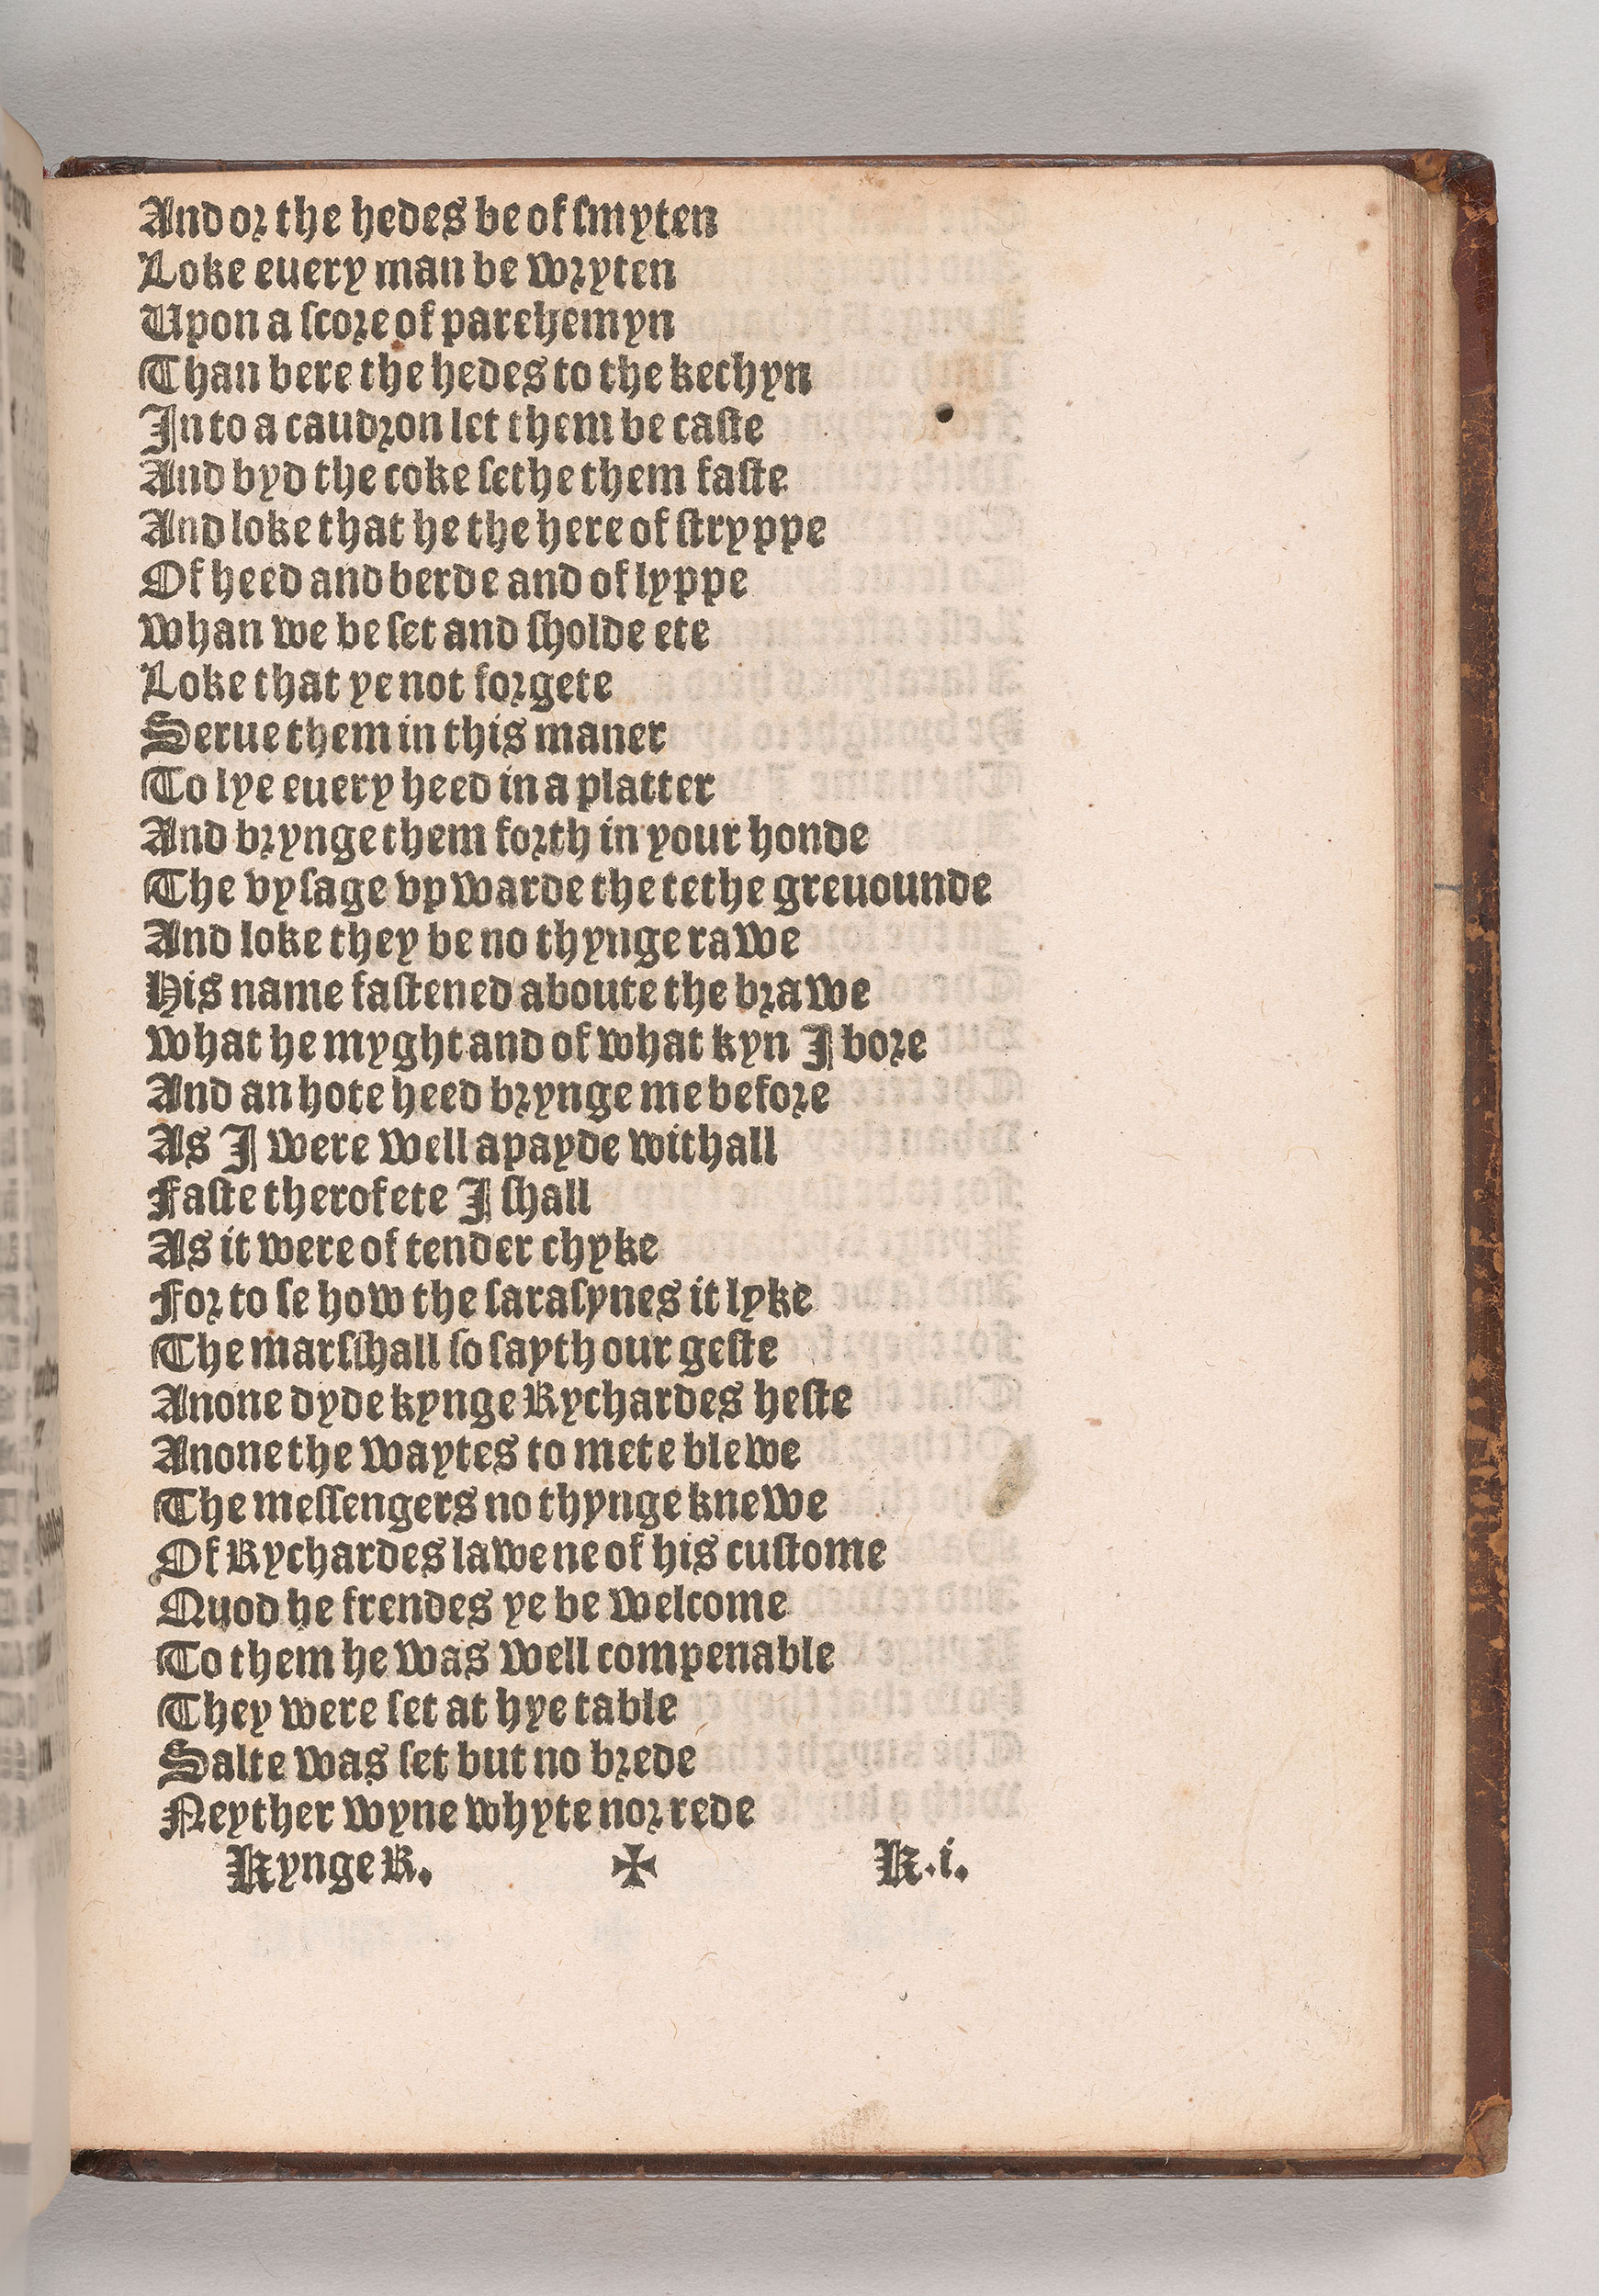 And or the hedes be of smyten
Loke euery man be wryten
Upon a score of parehemyn
Than bere the hedes to the kechyn
In to a caudron let them be caste
And byd the coke sethe them faste
And loke that he the here of stryppe
Of heed and berde and of lyppe
Whan we be set and sholde ete
Loke that ye not forgete
Serue them in this maner
To lye euery heed in a platter
And brynge them forth in your honde
The vysage vpwarde the tethe greuounde
And loke they be no thynge rawe
His name fastened aboute the brawe
What he myght and of what kyn I bore
And an hote heed brynge me before
As I were well apayde withall
Faste therof ete I shall
As it were of tender chyke
For to se how the sarasynes it lyke
The marsshall so sayth our geste
Anone dyde kynge Rychardes heste
Anone the waytes to mete blewe
The messengers no thynge knewe
Of Rychardes lawe ne of his custome
Quod he frendes ye be welcome
To them he was well compenable
They were set at hye table
Salte was set but no brede
Neyther wyne whyte nor rede
Kynge R. ✠ K.i.